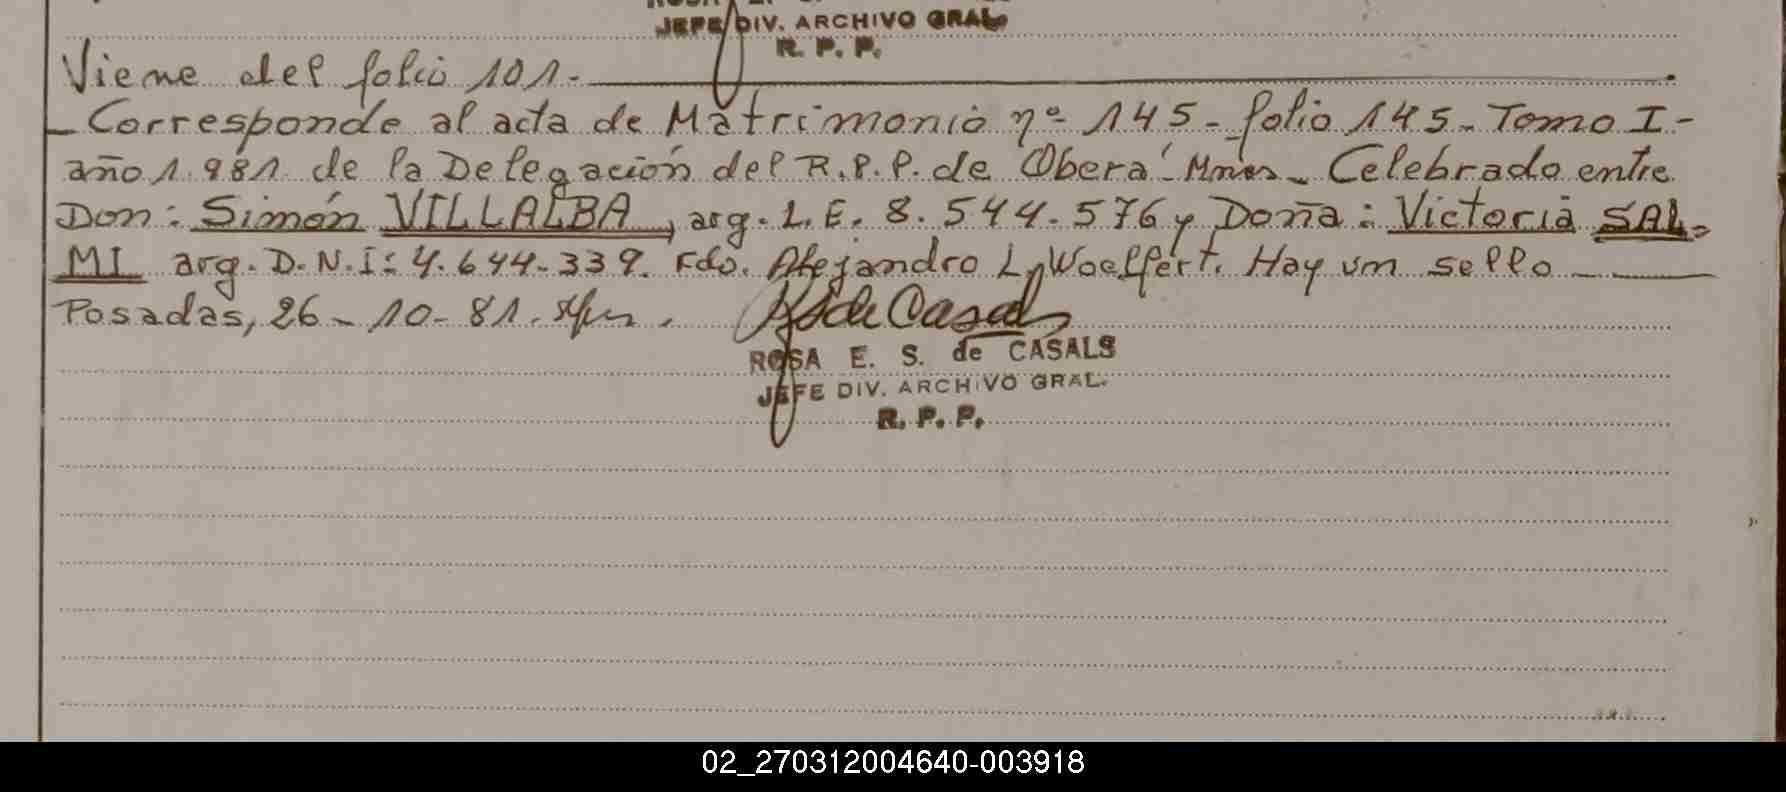 JEFE DIV. ARCHIVO GRAL.
R. P. P.
Viene del folio 101.-
_ Corresponde al acta de Matrimonio nº 145 - folio 145 - Tomo I -
año 1.981 de la Delegación del R.P.P. de Oberá - Mnes - Celebrado entre
Don: Simón VILLALBA, arg. L.E. 8.544.576 y Doña: Victoria SAL-
MI arg. D.N.I: 4.644.339. Fdo. Alejandro L. Woelfert. Hay un sello
Posadas, 26 - 10 - 81.
ROSA E. S. de CASALS
JEFE DIV. ARCHIVO GRAL.
R. P. P.
02_270312004640-003918